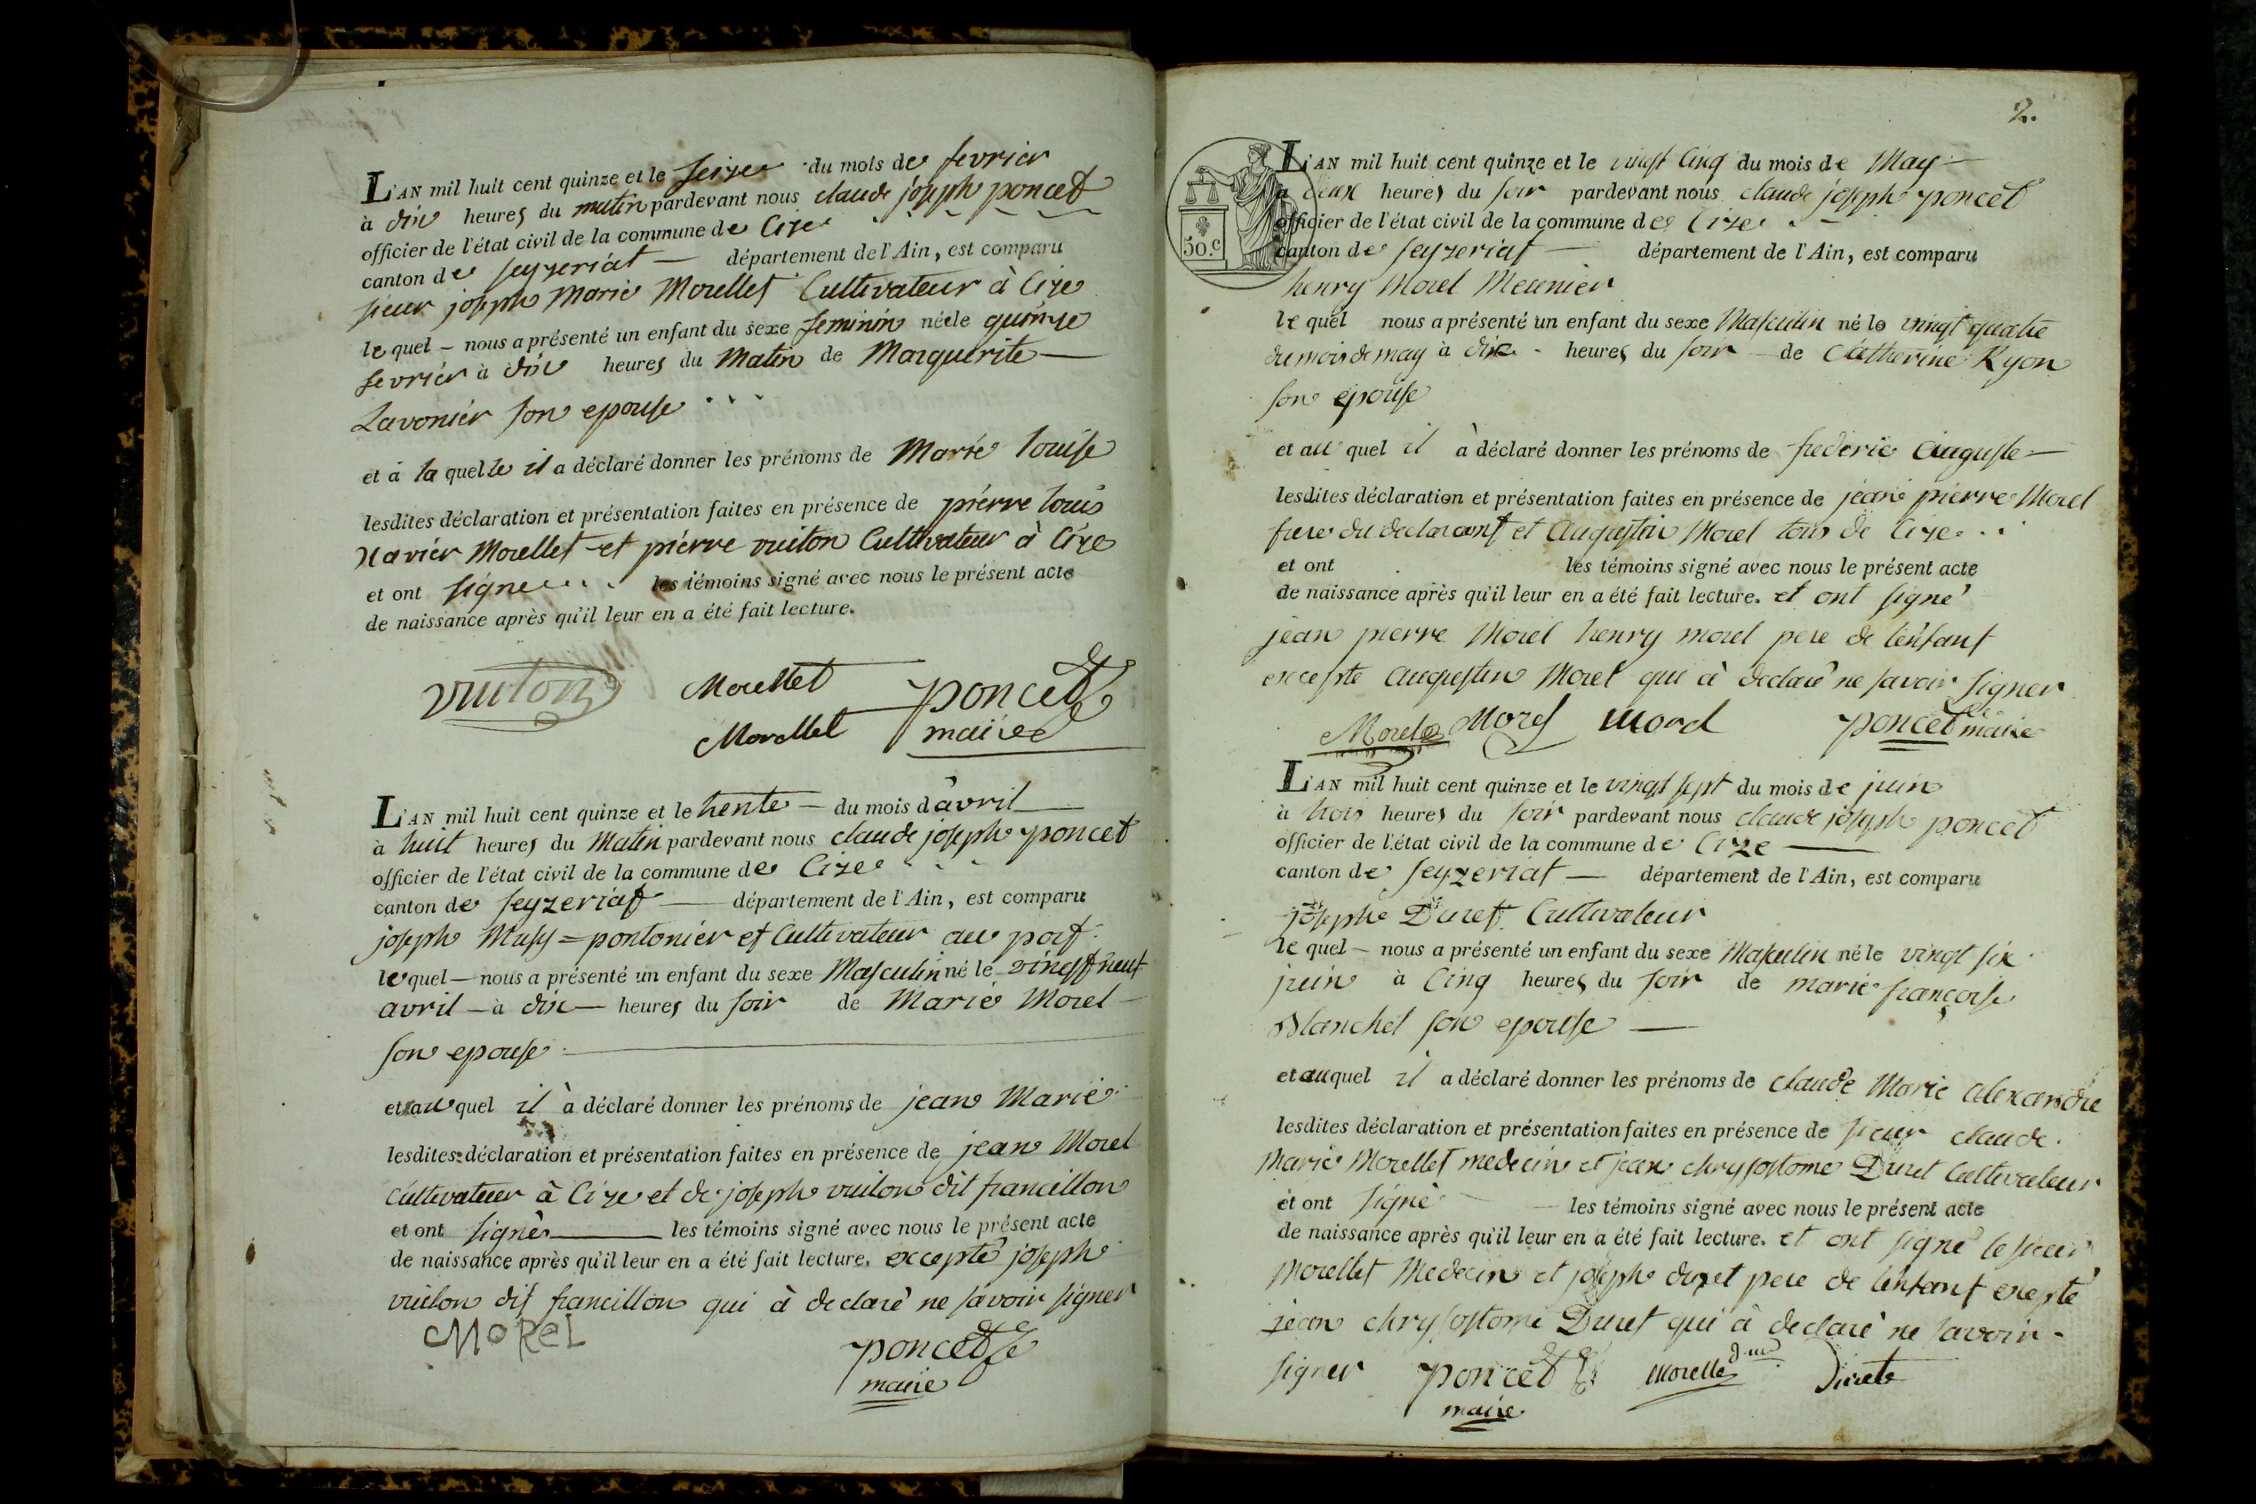 L'AN mil huit cent quinze et le seize du mois de fevrier
à dix heures du matin pardevant nous claude joseph poncet
officier de l'état civil de la commune de Cize
canton de seyzeriat département de l'Ain, est comparu
sieur joseph Marie Morellet Cultivateur à Cize
le quel – nous a présenté un enfant du sexe feminin née le quinze
fevrier à dix heures du Matin de Marguerite
Lavonier son epouse
et à la quelle il a déclaré donner les prénoms de Marie louise
lesdites déclaration et présentation faites en présence de pierre louis
Xavier Morellet et pierre vuiton Cultivateur à Cize
et ont signe les témoins signé avec nous le présent acte
de naissance après qu'il leur en a été fait lecture.
vuiton Morellet poncet
Morellet maire
L'AN mil huit cent quinze et le trente du mois d'avril
à huit heures du Matin pardevant nous claude joseph poncet
officier de l'état civil de la commune de Cize
canton de seyzeriat département de l'Ain, est comparu
joseph = pontonier et Cultivateur au port
le quel – nous a présenté un enfant du sexe Masculin né le vingt neuf
avril – à dix – heures du soir de Marie Morel
son epouse
et au quel il à déclaré donner les prénoms de jean Marie
lesdites déclaration et présentation faites en présence de jean Morel
Cultivateur à Cize et de joseph vuiton dit francillon
et ont signés les témoins signé avec nous le présent acte
de naissance après qu'il leur en a été fait lecture. excepté joseph
vuiton dit francillon qui à declaré ne savoir signer
MOREL poncet
maire
2.
L'AN mil huit cent quinze et le vingt Cinq du mois de May
à deux heures du soir pardevant nous claude joseph poncet
officier de l'état civil de la commune de Cize
50.c
canton de seyzeriat département de l'Ain, est comparu
henry Morel Meunier
le quel nous a présenté un enfant du sexe Masculin né le vingt quatre
du mois de may à dix heures du soir de Catherine Ryon
son epouse
et au quel il à déclaré donner les prénoms de frederic Auguste
lesdites déclaration et présentation faites en présence de jean pierre Morel
frere du declarant et Augustin Morel tous de Cize
et ont les témoins signé avec nous le présent acte
de naissance après qu'il leur en a été fait lecture. et ont signé
jean pierre Morel henry morel pere de l'enfant
excepte augustin Morel qui à declaré ne savoir signer
Morel Morel Morel poncet maire
L'AN mil huit cent quinze et le vingt sept du mois de juin
à trois heures du soir pardevant nous claude joseph poncet
officier de l'état civil de la commune de Cize
canton de seyzeriat département de l'Ain, est comparu
joseph Duret Cultivateur
le quel – nous a présenté un enfant du sexe Masculin né le vingt six
juin à Cinq heures du soir de marie françoise
Blanchet son epouse
et au quel il a déclaré donner les prénoms de claude Marie alexandre
lesdites déclaration et présentation faites en présence de sieur claude
Marie Morellet medecin et jean chrysostome Duret Cultivateur
et ont signé les témoins signé avec nous le présent acte
de naissance après qu'il leur en a été fait lecture. et ont signé le sieur
Morellet Medecin et joseph duret pere de l'enfant excepté
jean chrysostome Duret qui à declaré ne savoir
signer poncet Morellet Duret
maire